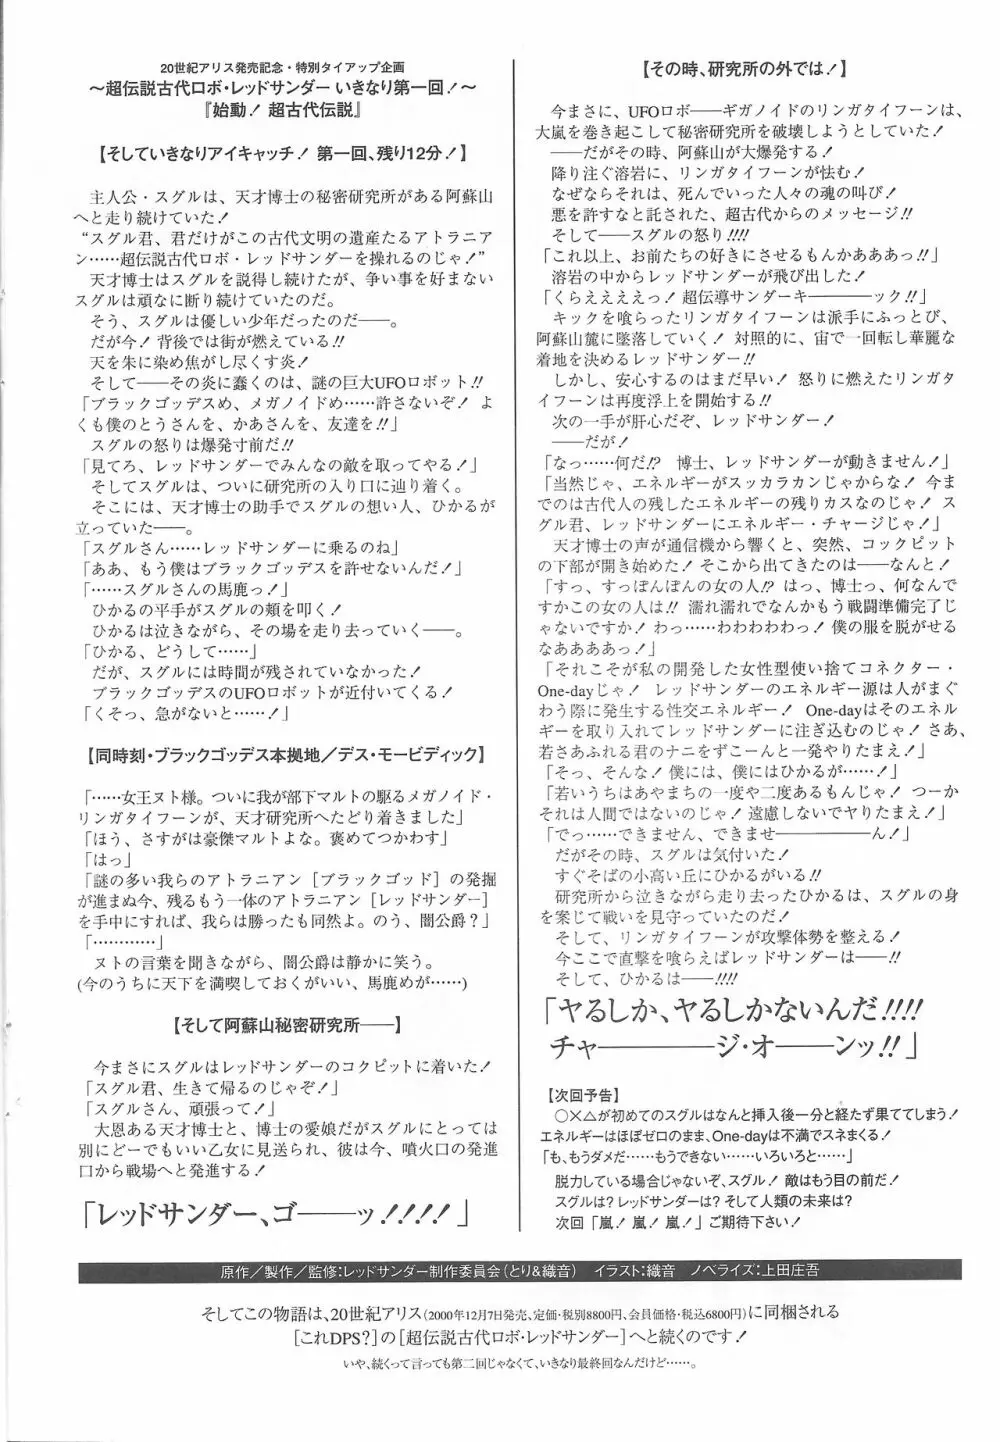 20世紀アリス発売記念・特別タイアップ企画
～超伝説古代ロボ・レッドサンダー いきなり第一回！～
『始動！ 超古代伝説』
【そしていきなりアイキャッチ！ 第一回、残り12分！】
主人公・スグルは、天才博士の秘密研究所がある阿蘇山
へと走り続けていた！
“スグル君、君だけがこの古代文明の遺産たるアトラニア
ン……超伝説古代ロボ・レッドサンダーを操れるのじゃ！”
天才博士はスグルを説得し続けたが、争い事を好まない
スグルは頑なに断り続けていたのだ。
そう、スグルは優しい少年だったのだ――。
だが今！ 背後では街が燃えている!!
天を朱に染め焦がし尽くす炎！
そして――その炎に蠢くのは、謎の巨大UFOロボット!!
「ブラックゴッデスめ、メガノイドめ……許さないぞ！ よ
くも僕のとうさんを、かあさんを、友達を!!」
スグルの怒りは爆発寸前だ!!
「見てろ、レッドサンダーでみんなの敵を取ってやる！」
そしてスグルは、ついに研究所の入り口に辿り着く。
そこには、天才博士の助手でスグルの想い人、ひかるが
立っていた――。
「スグルさん……レッドサンダーに乗るのね」
「ああ、もう僕はブラックゴッデスを許せないんだ！」
「……スグルさんの馬鹿っ！」
ひかるの平手がスグルの頬を叩く！
ひかるは泣きながら、その場を走り去っていく――。
「ひかる、どうして……」
だが、スグルには時間が残されていなかった！
ブラックゴッデスのUFOロボットが近付いてくる！
「くそっ、急がないと……！」
【同時刻・ブラックゴッデス本拠地／デス・モービディック】
「……女王ヌト様。ついに我が部下マルトの駆るメガノイド・
リンガタイフーンが、天才研究所へたどり着きました」
「ほう、さすがは豪傑マルトよな。褒めてつかわす」
「はっ」
「謎の多い我らのアトラニアン［ブラックゴッド］の発掘
が進まぬ今、残るもう一体のアトラニアン［レッドサンダー］
を手中にすれば、我らは勝ったも同然よ。のう、闇公爵？」
「…………」
ヌトの言葉を聞きながら、闇公爵は静かに笑う。
(今のうちに天下を満喫しておくがいい、馬鹿めが……)
【そして阿蘇山秘密研究所――】
今まさにスグルはレッドサンダーのコクピットに着いた！
「スグル君、生きて帰るのじゃぞ！」
「スグルさん、頑張って！」
大恩ある天才博士と、博士の愛娘だがスグルにとっては
別にどーでもいい乙女に見送られ、彼は今、噴火口の発進
口から戦場へと発進する！
「レッドサンダー、ゴ――ッ！！！！」
【その時、研究所の外では！】
今まさに、UFOロボ――ギガノイドのリンガタイフーンは、
大嵐を巻き起こして秘密研究所を破壊しようとしていた！
――だがその時、阿蘇山が大爆発する！
降り注ぐ溶岩に、リンガタイフーンが怯む！
なぜならそれは、死んでいった人々の魂の叫び！
悪を許すなと託された、超古代からのメッセージ!!
そして――スグルの怒り!!!!
「これ以上、お前たちの好きにさせるもんかあああっ!!」
溶岩の中からレッドサンダーが飛び出した！
「くらええええっ！ 超伝導サンダーキ――――ック!!」
キックを喰らったリンガタイフーンは派手にふっとび、
阿蘇山麓に墜落していく！ 対照的に、宙で一回転し華麗な
着地を決めるレッドサンダー!!
しかし、安心するのはまだ早い！ 怒りに燃えたリンガタ
イフーンは再度浮上を開始する!!
次の一手が肝心だぞ、レッドサンダー！
――だが！
「なっ……何だ!? 博士、レッドサンダーが動きません！」
「当然じゃ、エネルギーがスッカラカンじゃからな！ 今ま
でのは古代人の残したエネルギーの残りカスなのじゃ！ ス
グル君、レッドサンダーにエネルギー・チャージじゃ！」
天才博士の声が通信機から響くと、突然、コックピット
の下部が開き始めた！ そこから出てきたのは――なんと！
「すっ、すっぽんぽんの女の人!? はっ、博士っ、何なんで
すかこの女の人は!! 濡れ濡れでなんかもう戦闘準備完了じ
ゃないですか！ わっ……わわわわわっ！ 僕の服を脱がせる
なああああっ！」
「それこそが私の開発した女性型使い捨てコネクター・
One-dayじゃ！ レッドサンダーのエネルギー源は人がまぐ
わう際に発生する性交エネルギー！ One-dayはそのエネル
ギーを取り入れてレッドサンダーに注ぎ込むのじゃ！ さあ、
若さあふれる君のナニをずこーんと一発やりたまえ！」
「そっ、そんな！ 僕には、僕にはひかるが……！」
「若いうちはあやまちの一度や二度あるもんじゃ！ つーか
それは人間ではないのじゃ！ 遠慮しないでヤりたまえ！」
「でっ……できません、できませ――――ん！」
だがその時、スグルは気付いた！
すぐそばの小高い丘にひかるがいる!!
研究所から泣きながら走り去ったひかるは、スグルの身
を案じて戦いを見守っていたのだ！
そして、リンガタイフーンが攻撃体勢を整える！
今ここで直撃を喰らえばレッドサンダーは――!!
そして、ひかるは――!!!!
「ヤるしか、ヤるしかないんだ!!!!
チャ――――ジ・オ――ンッ!!」
【次回予告】
○×△が初めてのスグルはなんと挿入後一分と経たず果ててしまう！
エネルギーはほぼゼロのまま、One-dayは不満でスネまくる！
「も、もうダメだ……もうできない……いろいろと……」
脱力している場合じゃないぞ、スグル！ 敵はもう目の前だ！
スグルは？ レッドサンダーは？ そして人類の未来は？
次回「嵐！ 嵐！ 嵐！」ご期待下さい！
原作／製作／監修：レッドサンダー制作委員会（とり＆織音） イラスト：織音 ノベライズ：上田庄吾
そしてこの物語は、20世紀アリス（2000年12月7日発売、定価・税別8800円、会員価格・税込6800円）に同梱される
［これDPS？］の［超伝説古代ロボ・レッドサンダー］へと続くのです！
いや、続くって言っても第二回じゃなくて、いきなり最終回なんだけど……。